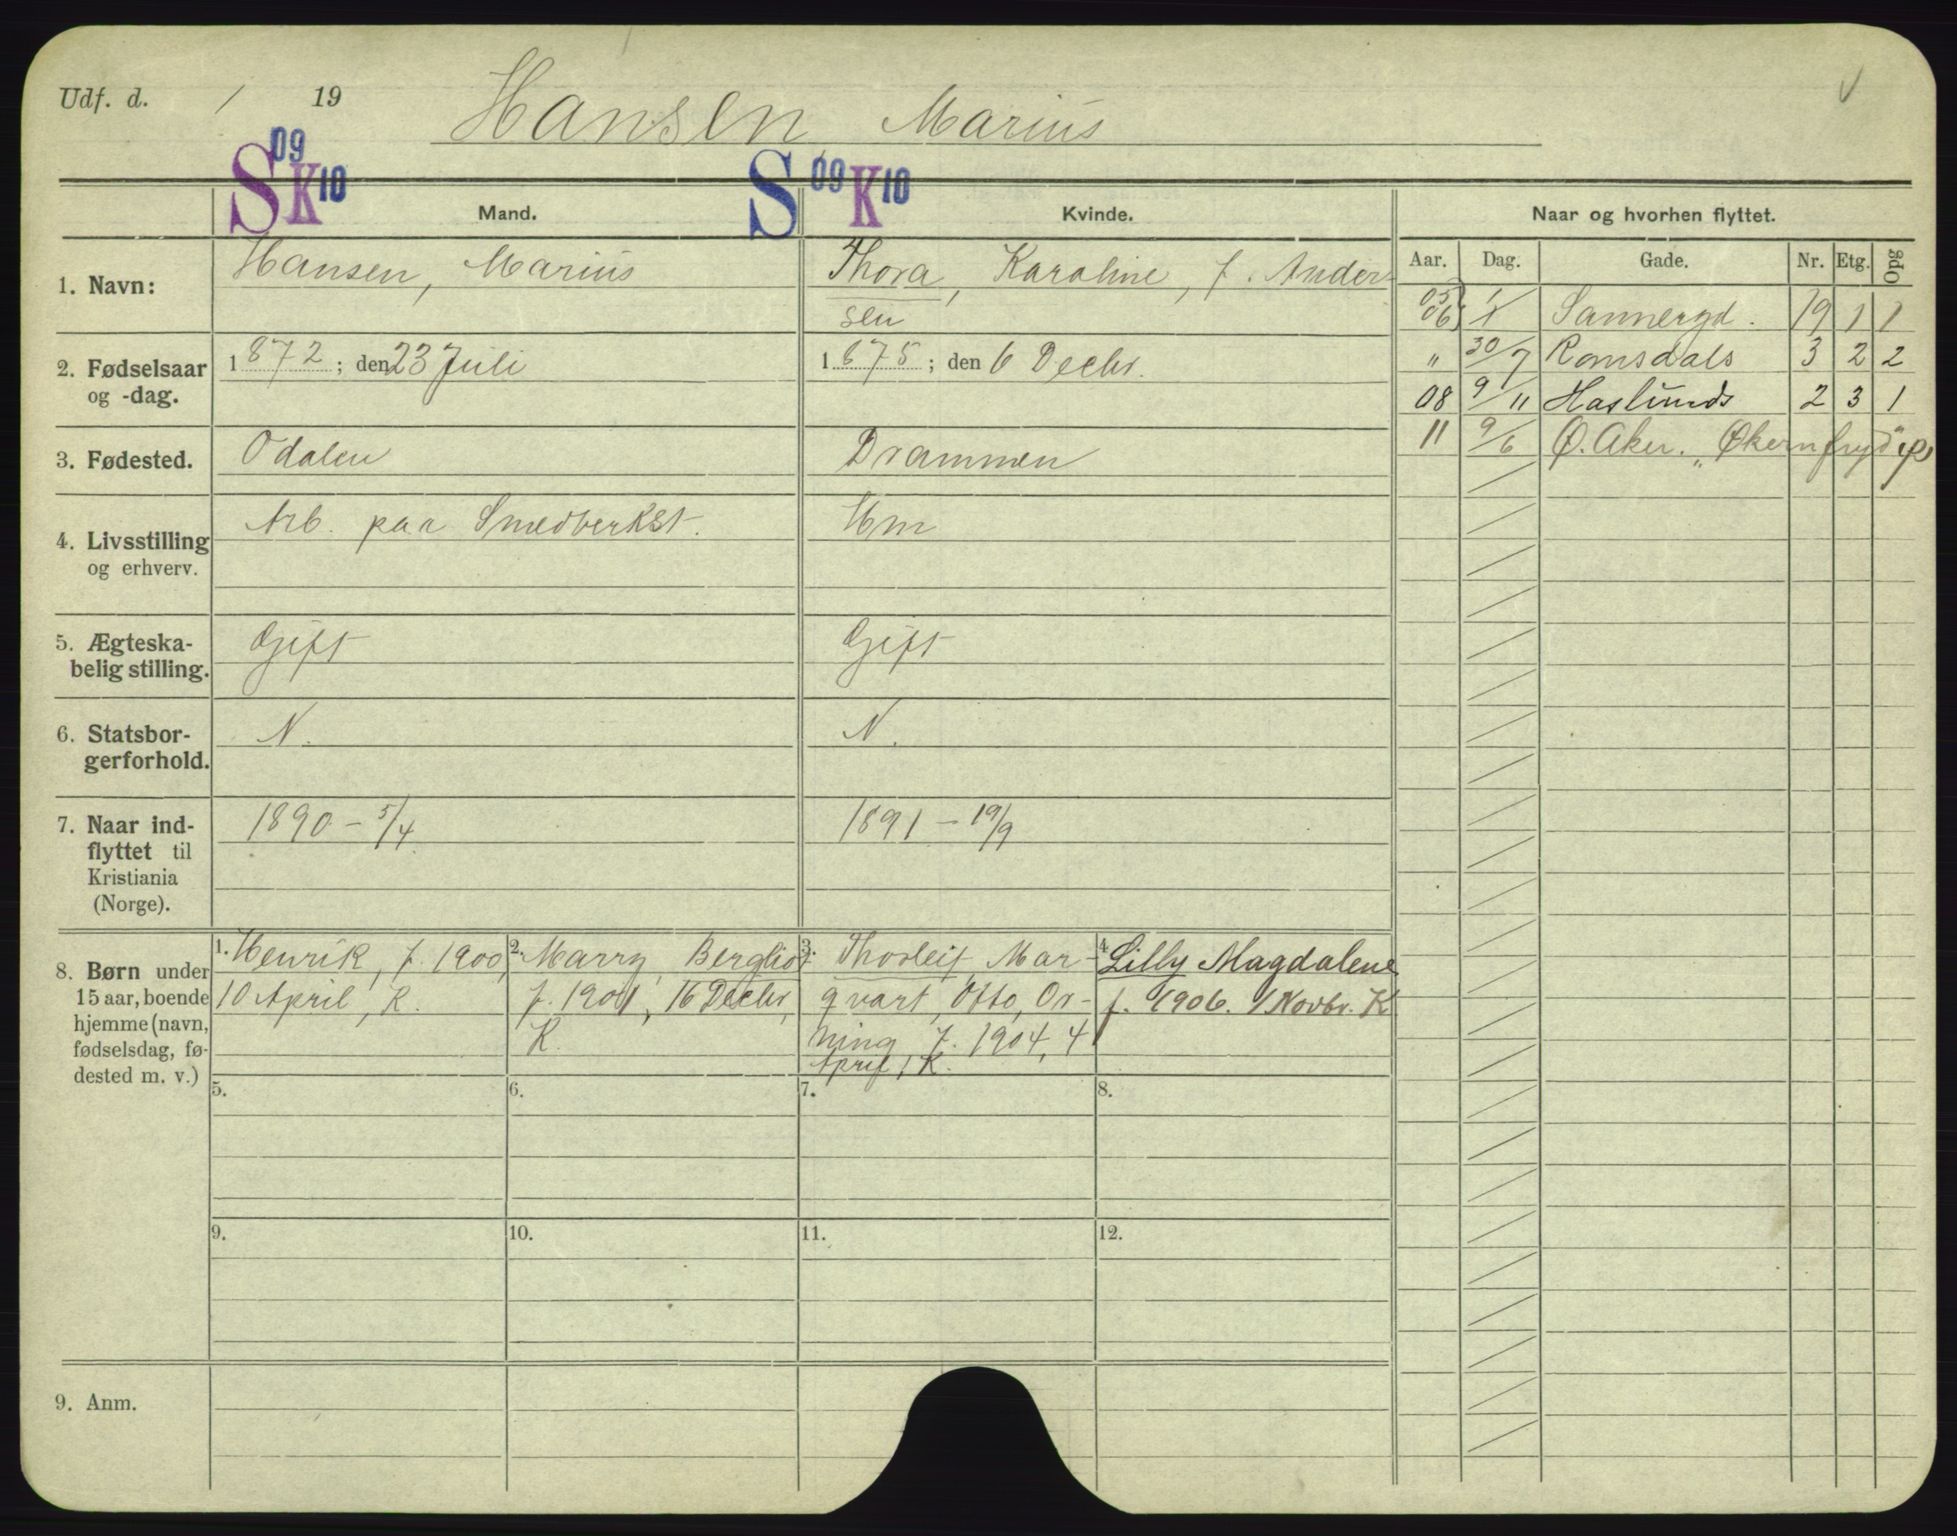 Udf. d. / 19
Hansen, Marius
S 09 K 10
S 09 K 10
Mand.
Kvinde.
Naar og hvorhen flyttet.
Aar. Dag. Gade. Nr. Etg. Opg
1. Navn:
Hansen, Marius
Thora, Karoline, f. Ander-
sen
2. Fødselsaar
og -dag.
1872; den 23 Juli
1875; den 6 Decbr.
3. Fødested.
Odalen
Drammen
4. Livsstilling
og erhverv.
Arb. paa Smedverkst.
Hm
5. Ægteska-
belig stilling.
Gift
Gift
6. Statsbor-
gerforhold.
N.
N.
7. Naar ind-
flyttet til
Kristiania
(Norge).
1890 - 5/4
1891 - 19/9
8. Børn under
15 aar, boende
hjemme (navn,
fødselsdag, fø-
dested m. v.)
1. Henrik, f. 1900,
10 April, K.
2. Marry Bergliot
f. 1901, 16 Decbr,
K.
3. Thorleif Mar-
qvart, Otto, Or-
ning f. 1904, 4
April, K.
4. Lilly Magdalene
f. 1906. 1/Novbr. K
5.
6.
7.
8.
9.
10.
11.
12.
9. Anm.
05
06 1/1 Sannergd. 19 1 1
" 30/7 Romsdals 3 2 2
08 9/11 Haslunds 2 3 1
11 9/6 Ø. Aker. "Økernfryd"